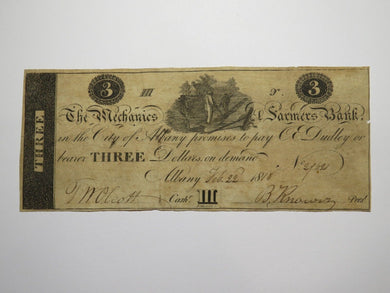 3 III 3
The Mechanics & Farmers Bank
in the City of Albany promises to pay C E Dudley or
bearer THREE Dollars, on demand
Albany Feb. 22 18
T W Olcott Cash. III B. Knower Pres.
THREE